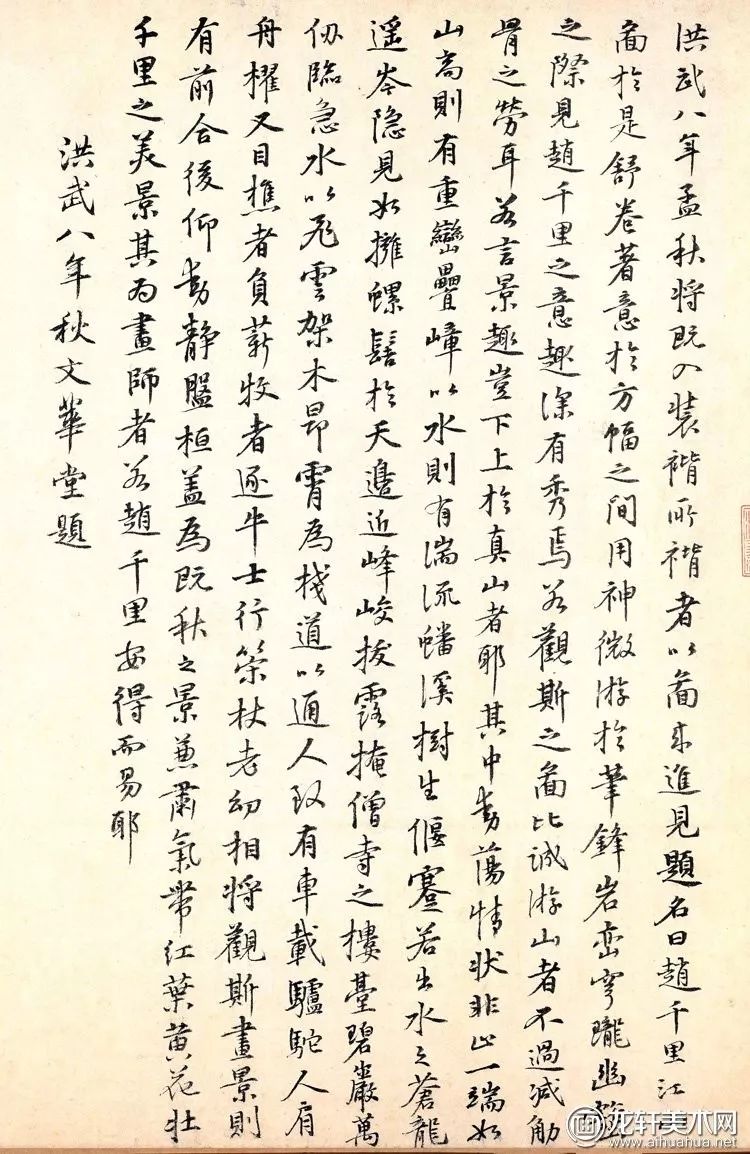 洪武八年孟秋将既入裝褙所褙者以圖来進見題名曰趙千里江
圖於是舒卷著意於方幅之間用神微游於筆鋒岩巒穹瓏幽
之際見趙千里之意趣深有秀焉若觀斯之圖比誠游山者不過減觔
骨之勞耳若言景趣豈下上於真山者耶其中動蕩情狀非止一端如
山高則有重巒疊嶂以水則有湍流蟠溪樹生偃蹇若出水之蒼龍
遥岑隐見如擁螺髻於天邊近峰峻拔露掩僧寺之樓臺碧巖萬
仭臨急水以飛雲架木昂霄為棧道以通人致有車載驢駝人肩
舟櫂又目樵者負薪牧者逐牛士行策杖老幼相將觀斯畫景則
有前合後仰動靜盤桓蓋為既秋之景兼肅氣帶紅葉黄花壯
千里之美景其為畫師者若趙千里安得而易耶
洪武八年秋文華堂題
龙轩美术网
www.aihuahua.net